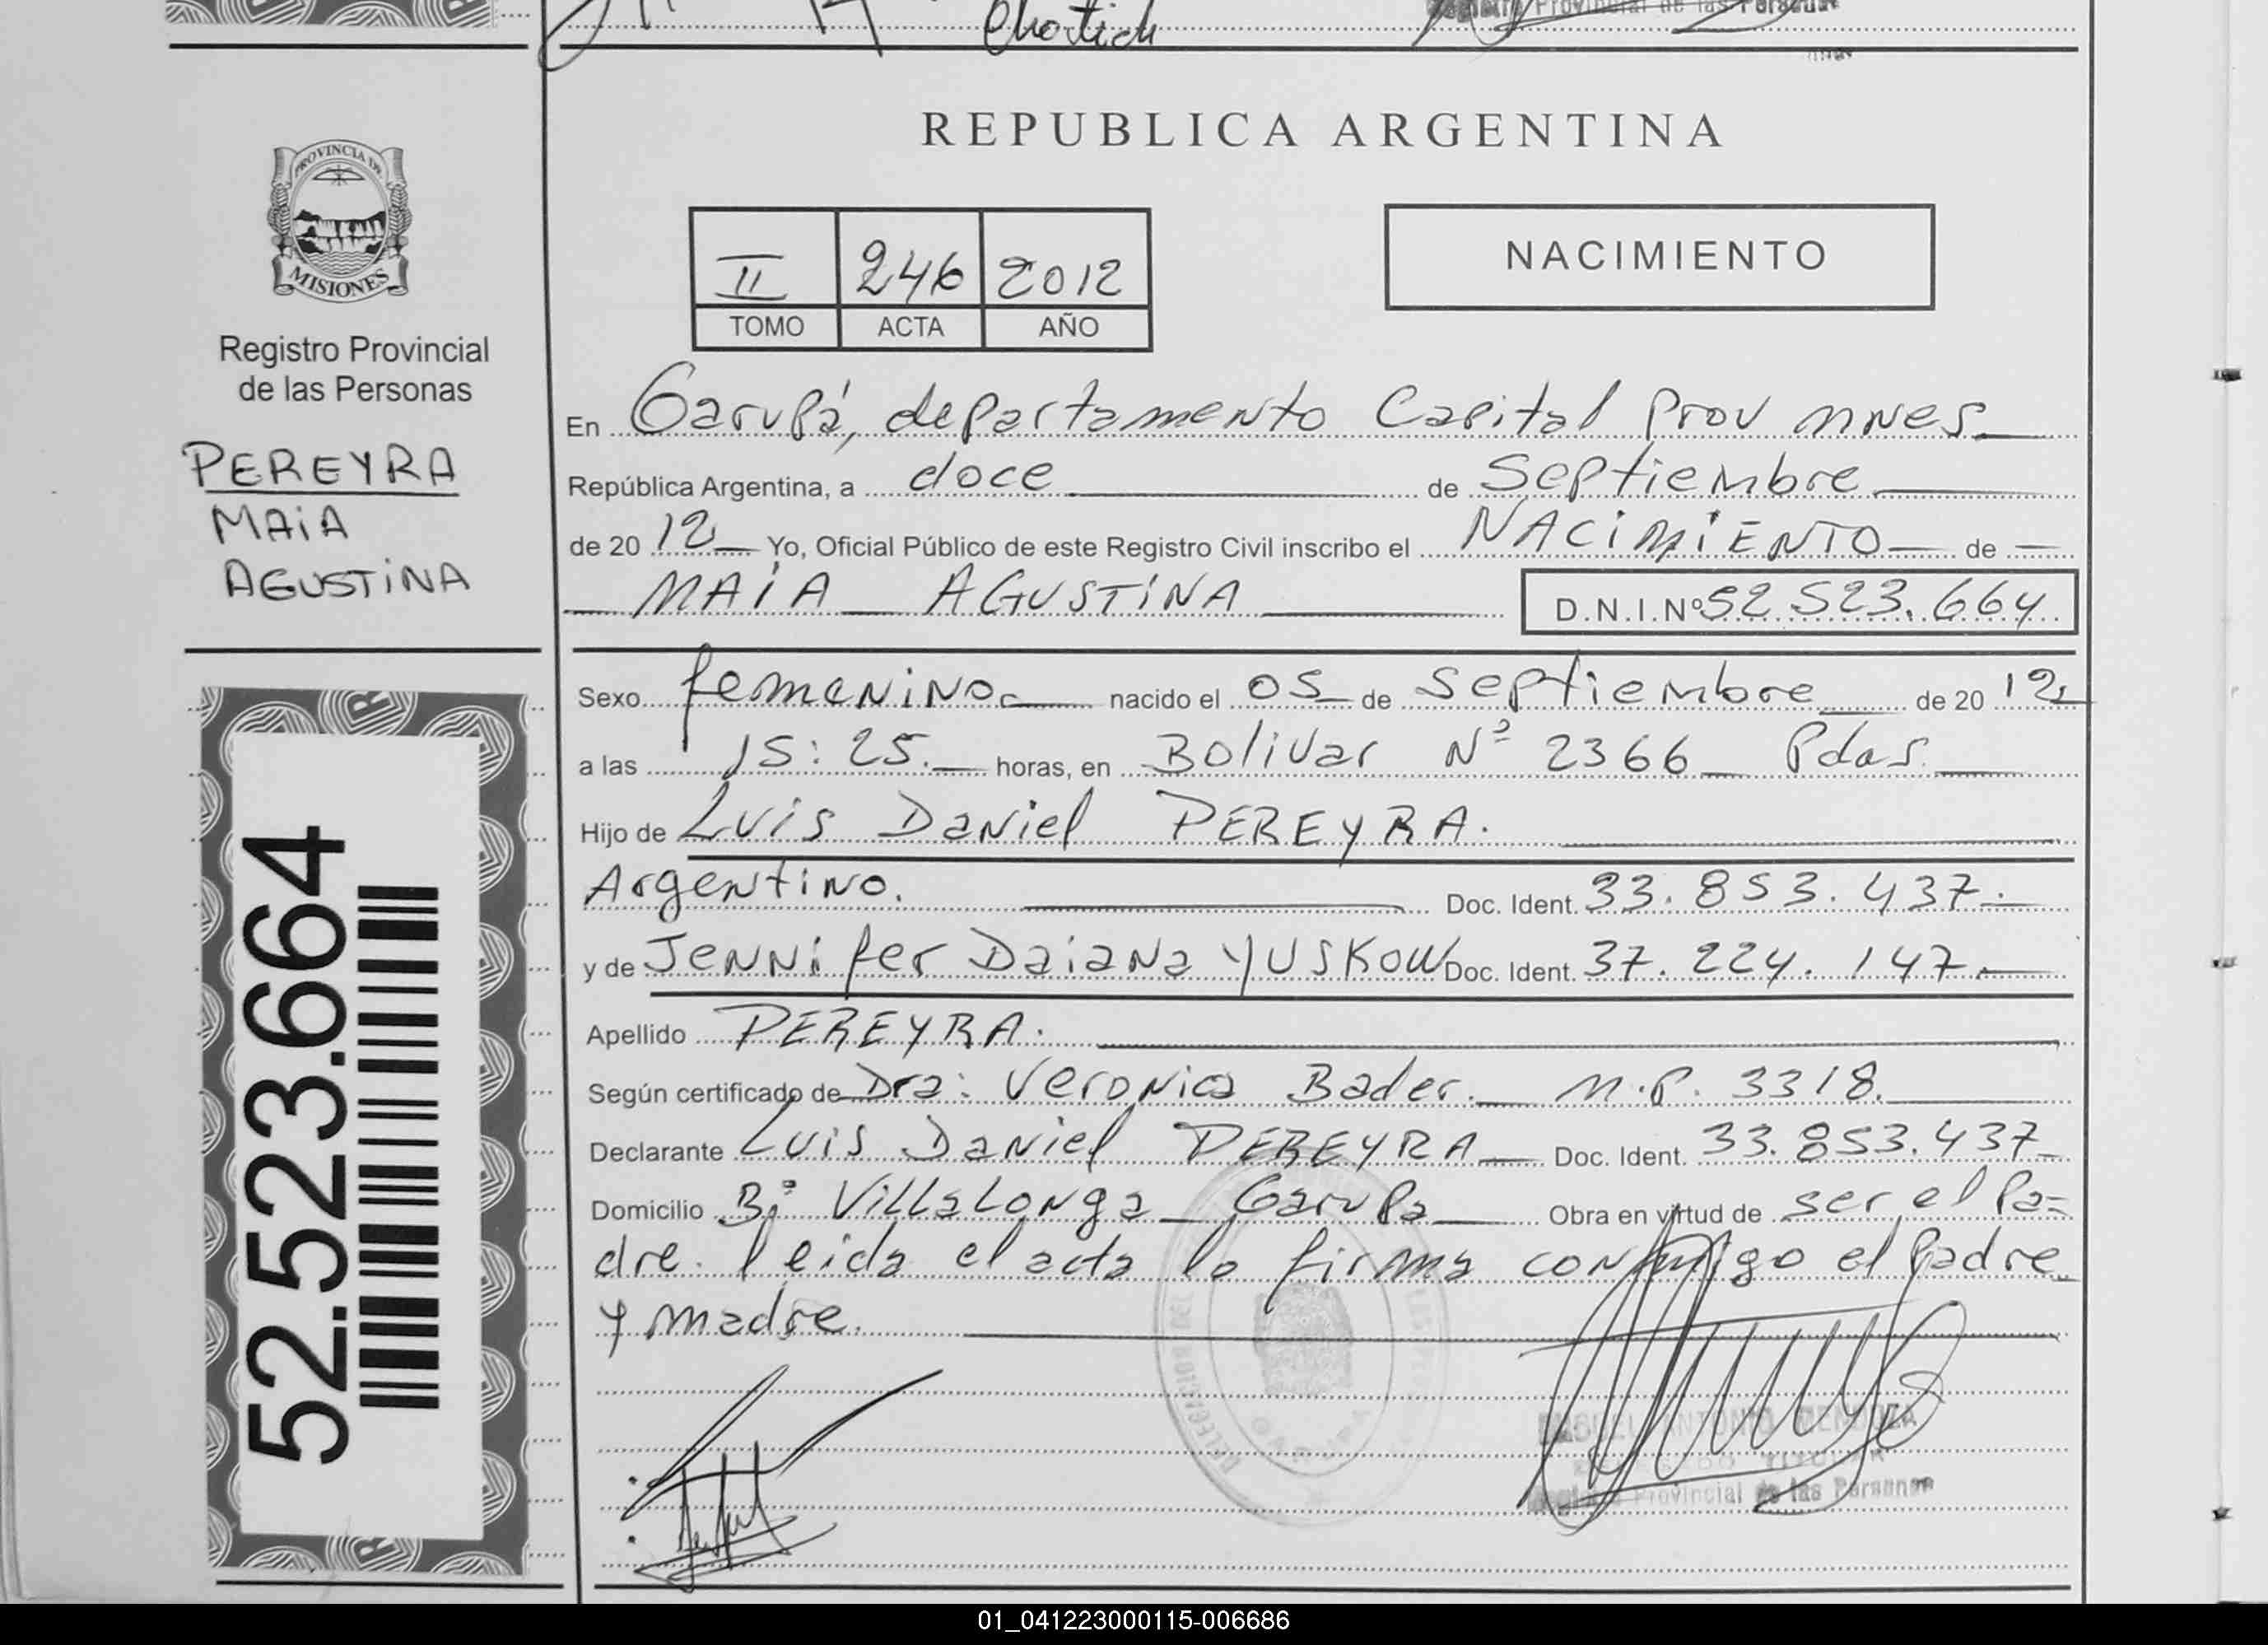 Chotich
Registro Provincial de las Personas
PROVINCIA DE
MISIONES
Registro Provincial
de las Personas
PEREYRA
MAiA
AGUSTiNA
52.523.664
REPUBLICA ARGENTINA
II 246 2012
TOMO ACTA AÑO
NACIMIENTO
En Garupá, departamento Capital Prov mnes
República Argentina, a doce de Septiembre
de 20 12 Yo, Oficial Público de este Registro Civil inscribo el NACiMiENTO de
MAiA AGUSTiNA D.N.I.Nº 52.523.664.
Sexo femenino nacido el 05 de Septiembre de 20 12
a las 15:25. horas, en Bolivar Nº 2366 Pdas.
Hijo de Luis Daniel PEREYRA.
Argentino. Doc. Ident. 33.853.437.
y de Jennifer Daiana YUSKOW Doc. Ident. 37.224.147.
Apellido PEREYRA.
Según certificado de Dra: Veronica Bader. M.P. 3318.
Declarante Luis Daniel PEREYRA Doc. Ident. 33.853.437
Domicilio Bº Villalonga Garupa Obra en virtud de ser el Pa=
dre. leida el acta la firma conmigo el Padre
y madre.
DELEGACION DEL
ANTONIO MENDOZA
TITULAR
Registro Provincial de las Personas
01_041223000115-006686